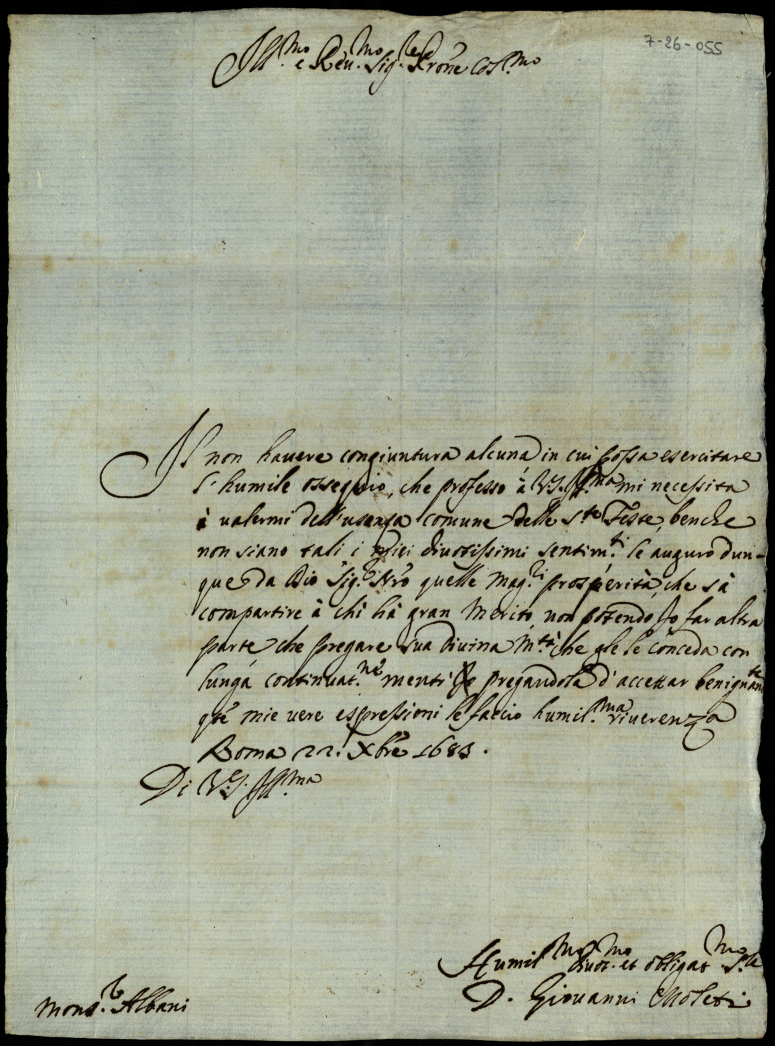 7-26-055
Ill.mo e Reu.mo Sig.re Prone Col.mo
Il non hauere congiuntura alcuna in cui possa esercitare
l'humile ossequio, che professo à V.S. Ill.ma mi necessita
à ualermi dell'usanza comune delle S.te Feste, benche
non siano tali i miei diuotissimi sentim.ti le auguro dun-
que da Dio Sig.r Nro quelle mag.ri prosperità, che sà
compartire à chi hà gran Merito, non potendo Io far altra
parte che pregare sua Diuina M.tà che gle le conceda con
lunga continuat.ne mentre pregandola d'accettar benignam.te
q.te mie uere espressioni le faccio humil.ma riuerenza
Roma 22. Xbre 1683.
Di V.S. Ill.ma
Humil.mo Diuot.mo et obligat.mo S.re
D. Giovanni Moleti
Mons.r Albani